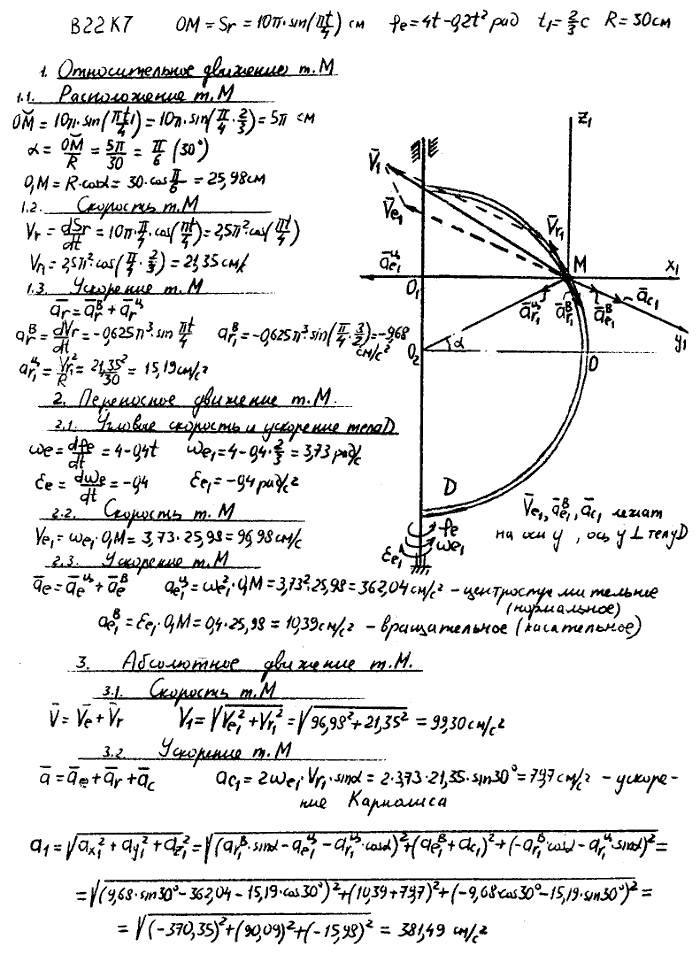 В22К7 OM = Sr = 10π·sin(πt/4) см φe = 4t - 0,2t² рад t₁ = 2/3 с R = 30 см
1. Относительное движение т.М
1.1. Расположение т.М
OM = 10π·sin(πt₁/4) = 10π·sin(π/4·2/3) = 5π см
α = OM/R = 5π/30 = π/6 (30°)
O₁M = R·cosα = 30·cos π/6 = 25,98 см
1.2. Скорость т.М
Vr = dSr/dt = 10π·π/4·cos(πt/4) = 2,5π²cos(πt/4)
Vr₁ = 2,5π²cos(π/4·2/3) = 21,35 см/с
1.3. Ускорение т.М
a̅r = a̅rᴮ + a̅rᶣ
arᴮ = dVr/dt = -0,625π³·sin πt/4 ar₁ᴮ = -0,625π³·sin(π/4·3/2) = -9,68 см/с²
ar₁ᶣ = Vr₁²/R = 21,35²/30 = 15,19 см/с²
2. Переносное движение т.М.
2.1. Угловые скорость и ускорение тела D
ωe = dφe/dt = 4 - 0,4t ωe₁ = 4 - 0,4·2/3 = 3,73 рад/с
εe = dωe/dt = -0,4 εe₁ = -0,4 рад/с²
2.2. Скорость т.М
Ve₁ = ωe₁·O₁M = 3,73·25,98 = 96,98 см/с
2.3. Ускорение т.М
a̅e = a̅eᶣ + a̅eᴮ ae₁ᶣ = ωe₁²·O₁M = 3,73²·25,98 = 362,04 см/с² - центростремительное
(нормальное)
ae₁ᴮ = εe₁·O₁M = 0,4·25,98 = 10,39 см/с² - вращательное (касательное)
z₁
V̅₁
V̅e₁
V̅r₁
M
x₁
a̅e₁ᶣ
O₁
a̅r₁ᶣ
a̅r₁ᴮ
a̅e₁ᴮ
a̅c₁
y₁
α
O₂
O
D
φe
ωe₁
εe₁
V̅e₁, a̅e₁ᴮ, a̅c₁ лежат
на оси y, ось y ⊥ телу D
3. Абсолютное движение т.М.
3.1. Скорость т.М
V̅ = V̅e + V̅r V₁ = √(Ve₁² + Vr₁²) = √(96,98² + 21,35²) = 99,30 см/с
3.2. Ускорение т.М
a̅ = a̅e + a̅r + a̅c ac₁ = 2ωe₁·Vr₁·sinα = 2·3,73·21,35·sin30° = 79,7 см/с² - ускоре-
ние Кариолиса
a₁ = √(ax₁² + ay₁² + az₁²) = √((ar₁ᴮ·sinα - ae₁ᶣ - ar₁ᶣ·cosα)² + (ae₁ᴮ + ac₁)² + (-ar₁ᴮ·cosα - ar₁ᶣ·sinα)²) =
= √((9,68·sin30° - 362,04 - 15,19·cos30°)² + (10,39 + 79,7)² + (-9,68·cos30° - 15,19·sin30°)²) =
= √((-370,35)² + (90,09)² + (-15,98)²) = 381,49 см/с²